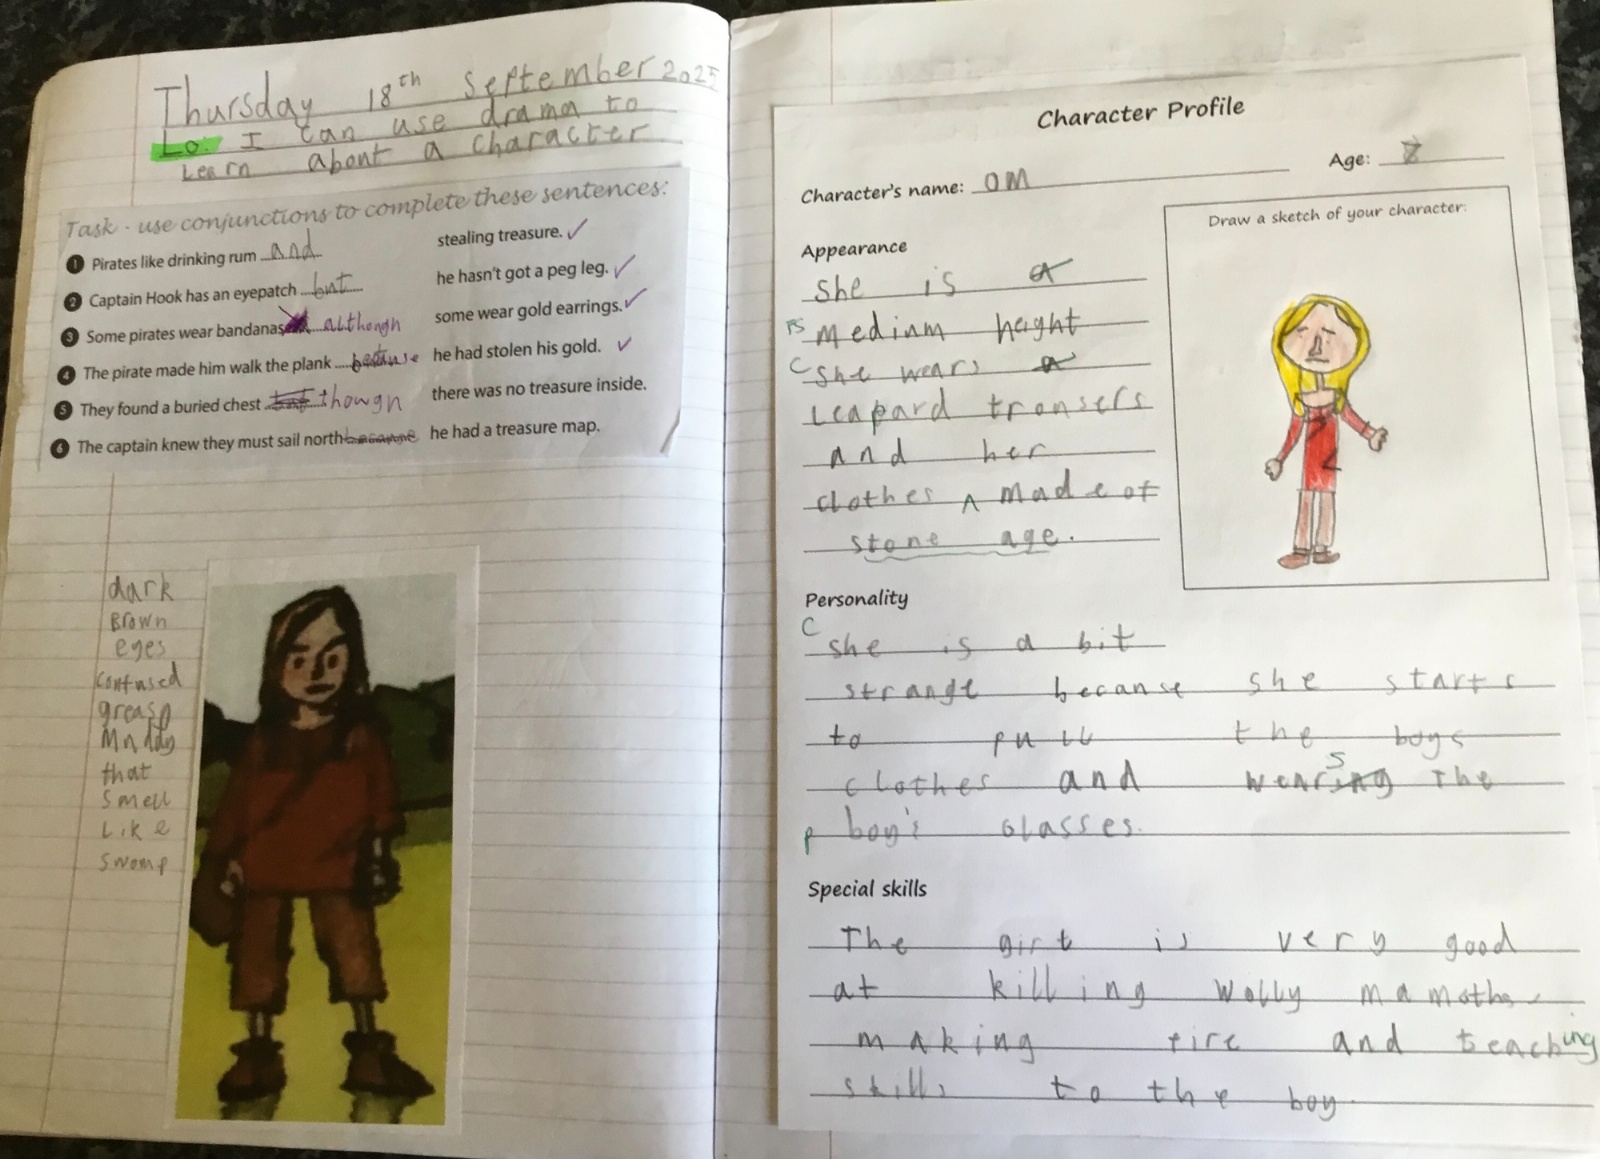 Thursday 18th September 2025
Lo. I can use drama to
Learn about a character
Task - use conjunctions to complete these sentences:
1 Pirates like drinking rum and stealing treasure. ✓
2 Captain Hook has an eyepatch but he hasn't got a peg leg. ✓
3 Some pirates wear bandanas although some wear gold earrings. ✓
4 The pirate made him walk the plank because he had stolen his gold. ✓
5 They found a buried chest but though there was no treasure inside.
6 The captain knew they must sail north because he had a treasure map.
dark
Brown
eyes
confused
greasy
Muddy
that
smell
Like
swomp
Character Profile
Character's name: om
Age: 8
Draw a sketch of your character:
Appearance
she is a
PS medium height
C she wears a
Leapard trousers
and her
clothes ^ made of
stone age.
Personality
C
she is a bit
strange because she starts
to pull the boys
s
clothes and wearing the
p boy's glasses.
Special skills
The girl is very good
at killing Wolly mamoths
making fire and teaching
skills to the boy.